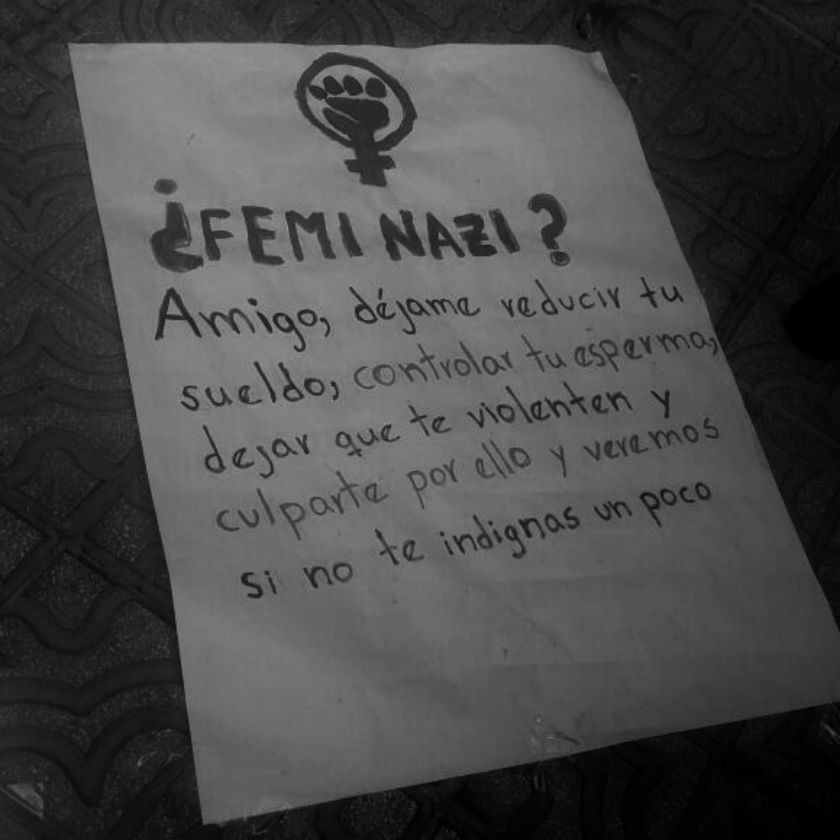 ¿FEMINAZI?
Amigo, déjame reducir tu
sueldo, controlar tu esperma,
dejar que te violenten y
culparte por ello y veremos
si no te indignas un poco